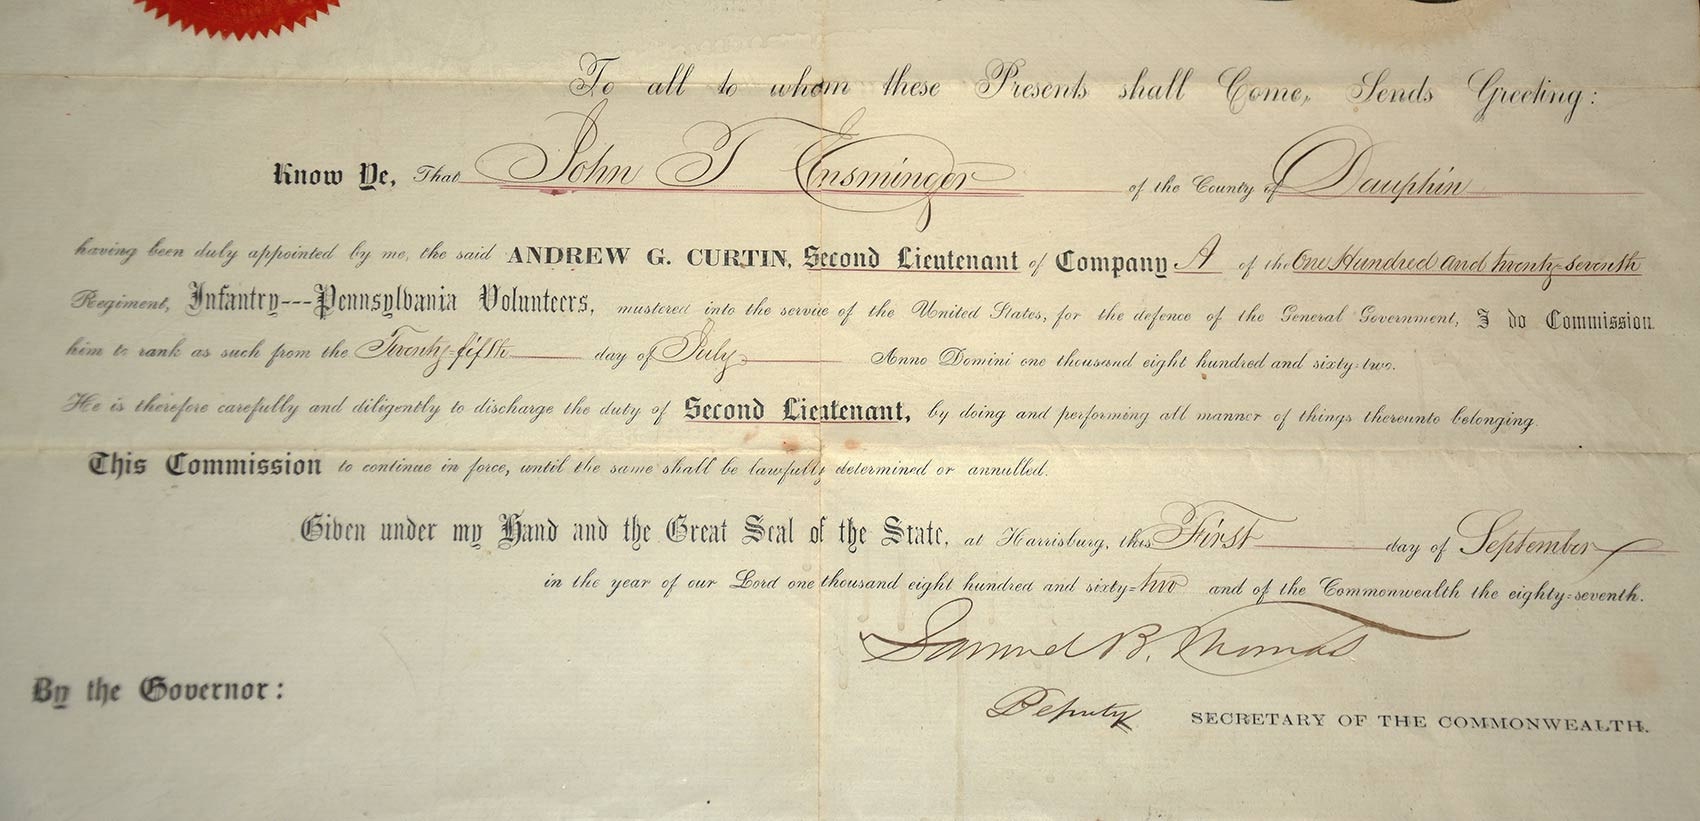 To all to whom these Presents shall Come, Sends Greeting:
Know Ye, That John T Ensminger of the County of Dauphin
having been duly appointed by me, the said ANDREW G. CURTIN, Second Lieutenant of Company A of the One Hundred and twenty-seventh
Regiment, Infantry---Pennsylvania Volunteers, mustered into the service of the United States, for the defence of the General Government, I do Commission
him to rank as such from the Twenty-fifth day of July Anno Domini one thousand eight hundred and sixty-two.
He is therefore carefully and diligently to discharge the duty of Second Lieutenant, by doing and performing all manner of things thereunto belonging.
This Commission to continue in force, until the same shall be lawfully determined or annulled.
Given under my Hand and the Great Seal of the State, at Harrisburg, this First day of September
in the year of our Lord one thousand eight hundred and sixty-two and of the Commonwealth the eighty-seventh.
Samuel B. Thomas
By the Governor:
Deputy SECRETARY OF THE COMMONWEALTH.